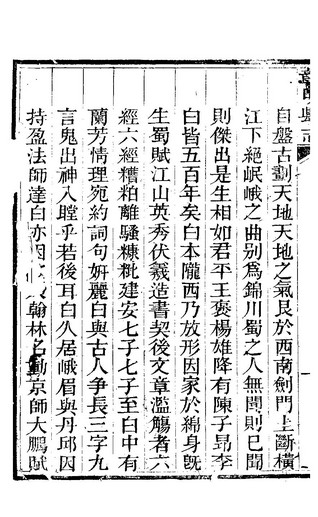 自盤古劃天地天地之氣艮於西南劍門上斷橫
江下絕岷峨之曲別爲錦川蜀之人無聞則已聞
則傑出是生相如君平王褒楊雄降有陳子昻李
白皆五百年矣白本隴西乃放形因家於綿身旣
生蜀賦江山英秀伏羲造書契後文章濫觴者六
經六經糟粕離騷糠粃建安七子七子至白中有
蘭芳情理宛約詞句妍麗白與古人爭長三字九
言鬼出神入瞠乎若後耳白久居峨眉與丹邱因
持盈法師達白亦因翰林名動京師大鵬賦